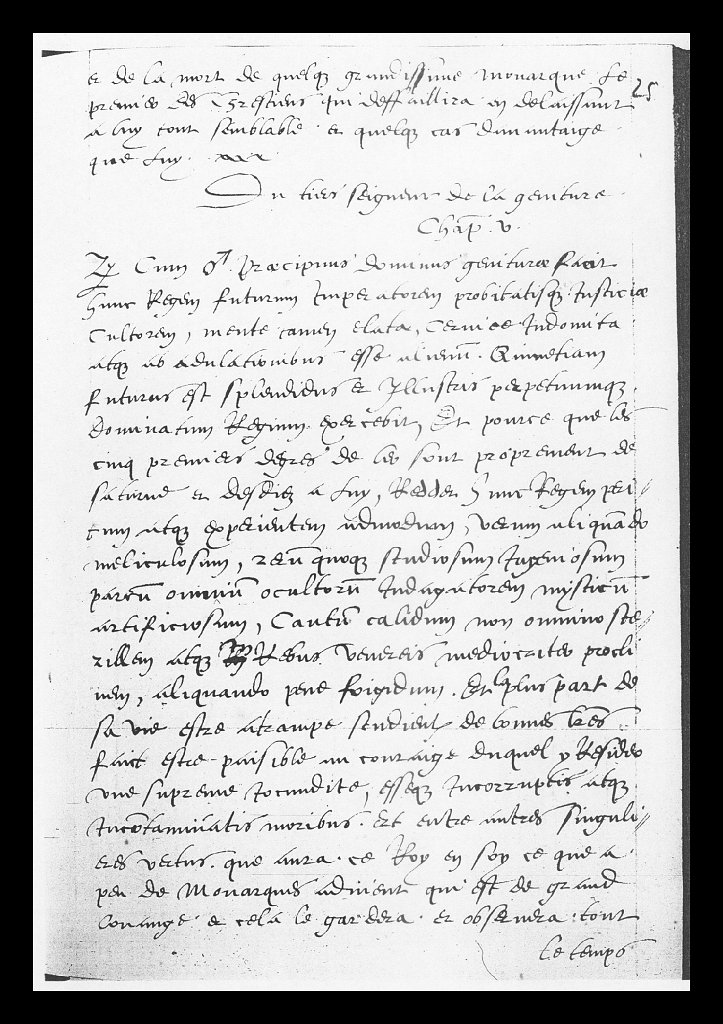 et de la mort de quelq grandissime monarque. Le
25
premier des Chrestiens qui deffaillira en delaissant
a luy tout semblable et quelq cas davantaige
que luy.
Du tiers seigneur de la geniture.
Chap. v.
♃ Cum ♂. Præcipuus dominus genituræ facit
hunc Regem futurum Imperatorem probitatisq; Justiciæ
Cultorem, mente tamen elata, Cervice Indomita
atq; ab adulationibus esse alienu. Quinetiam
futurus est splendidus et Illustris perpetuumq;
dominatum Regium exercebit, Et pource que les
cinq premiers degres de leo sont proprement de
saturne et desdiez a luy, Redder hunc Regem peri-
tum atq; experientem admodum, verum aliquando
meliculosum, reru quoq; studiosum Ingeniosum
parcu omniu ocultoru Indagatorem mysticu
artificiosum, Cautu calidum non omnino ste-
rillem atq; Rebus venereis mediocriter procli
nem, aliquando pene frigidum. Et la plus part de
sa vie estre atrampe studieut de bonnes lres
fait estre paisible un couraige duquel y Residera
une supreme Jocundite, esseq; Incorruptis atq;
Incotaminatis moribus. Et entre autres singuli-
eres vertus. que aura ce Roy en soy ce que a
peu de Monarques advient qui est de grand
louange et cela le gardera et observera tout
le temps